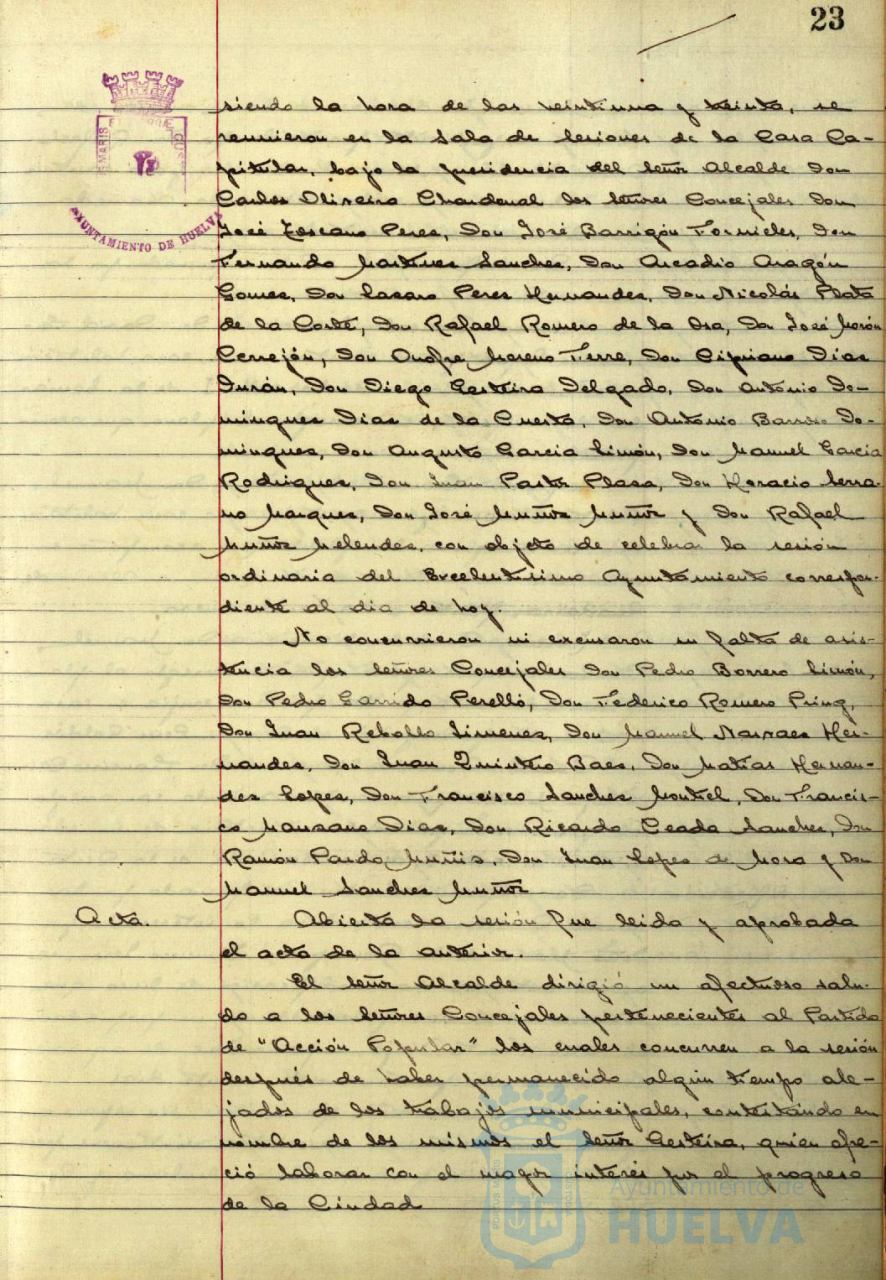 23
siendo la hora de las veintiuna y treinta, se
reunieron en la Sala de Sesiones de la Casa Ca-
pitular, bajo la presidencia del señor Alcalde Don
Carlos Oliveira Chardenal los señores Concejales Don
José Toscano Peres, Don José Barrigón Fornieles, Don
Fernando Martines Sanches, Don Arcadio Aragón
Gomes, Don Casaro Peres Hernandes, Don Nicolás Plata
de la Corte, Don Rafael Romero de la Osa, Don José Morón
Cerrejón, Don Onofre Moreno Ferre, Don Cipriano Dias
Durán, Don Diego Gesteira Delgado, Don António Do-
mingues Dias de la Cuesta, Don António Barroso Do-
mingues, Don Augusto Garcia Simón, Don Manuel Garcia
Rodrigues, Don Juan Pastor Plasa, Don Horacio Serra-
no Marques, Don José Muños Muños y Don Rafael
Muños Melendes, con objeto de celebra la sesión
ordinaria del Excelentisimo Ayuntamiento correspon-
diente al dia de hoy.
No concurrieron ni excusaron su falta de asis-
tencia los señores Concejales Don Pedro Borrero Limón,
Don Pedro Garrido Perelló, Don Federico Romero Pring,
Don Juan Rebollo Jimenes, Don Manuel Narvaes Her-
nandes, Don Juan Quintero Baes, Don Matias Hernan-
des Lopes, Don Francisco Sanches Montiel, Don Francis-
co Mansano Dias, Don Ricardo Ceada Sanches, Don
Ramón Pardo Muñis, Don Juan Lopes de Mora y Don
Manuel Sanches Muños
Acta. Abierta la sesión fue leida y aprobada
el acta de la anterior.
El señor Alcalde dirigió un afectuoso salu-
do a los señores Concejales pertenecientes al Partido
de "Acción Popular" los cuales concurren a la sesión
después de haber permanecido algún tiempo ale-
jados de los trabajos municipales, contestando en
nombre de los mismos el señor Gesteira, quien ofre-
ció laborar con el mayor interés por el progreso
de la Ciudad
AYUNTAMIENTO DE HUELVA
Ayuntamiento de
HUELVA